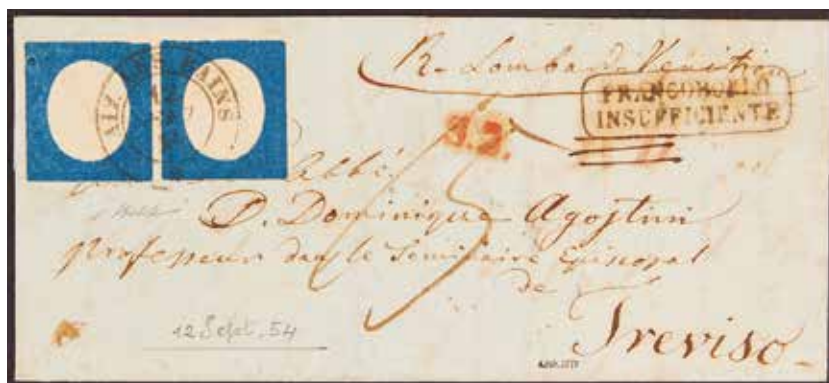 AIX LES BAINS
R. Lombard Venitien
FRANCOBOLLO
INSUFFICIENTE
3.2.
Abbé
D. Dominique Agostini
professeur dans le Seminaire Episcopal
de
Treviso
12 Sept. 54